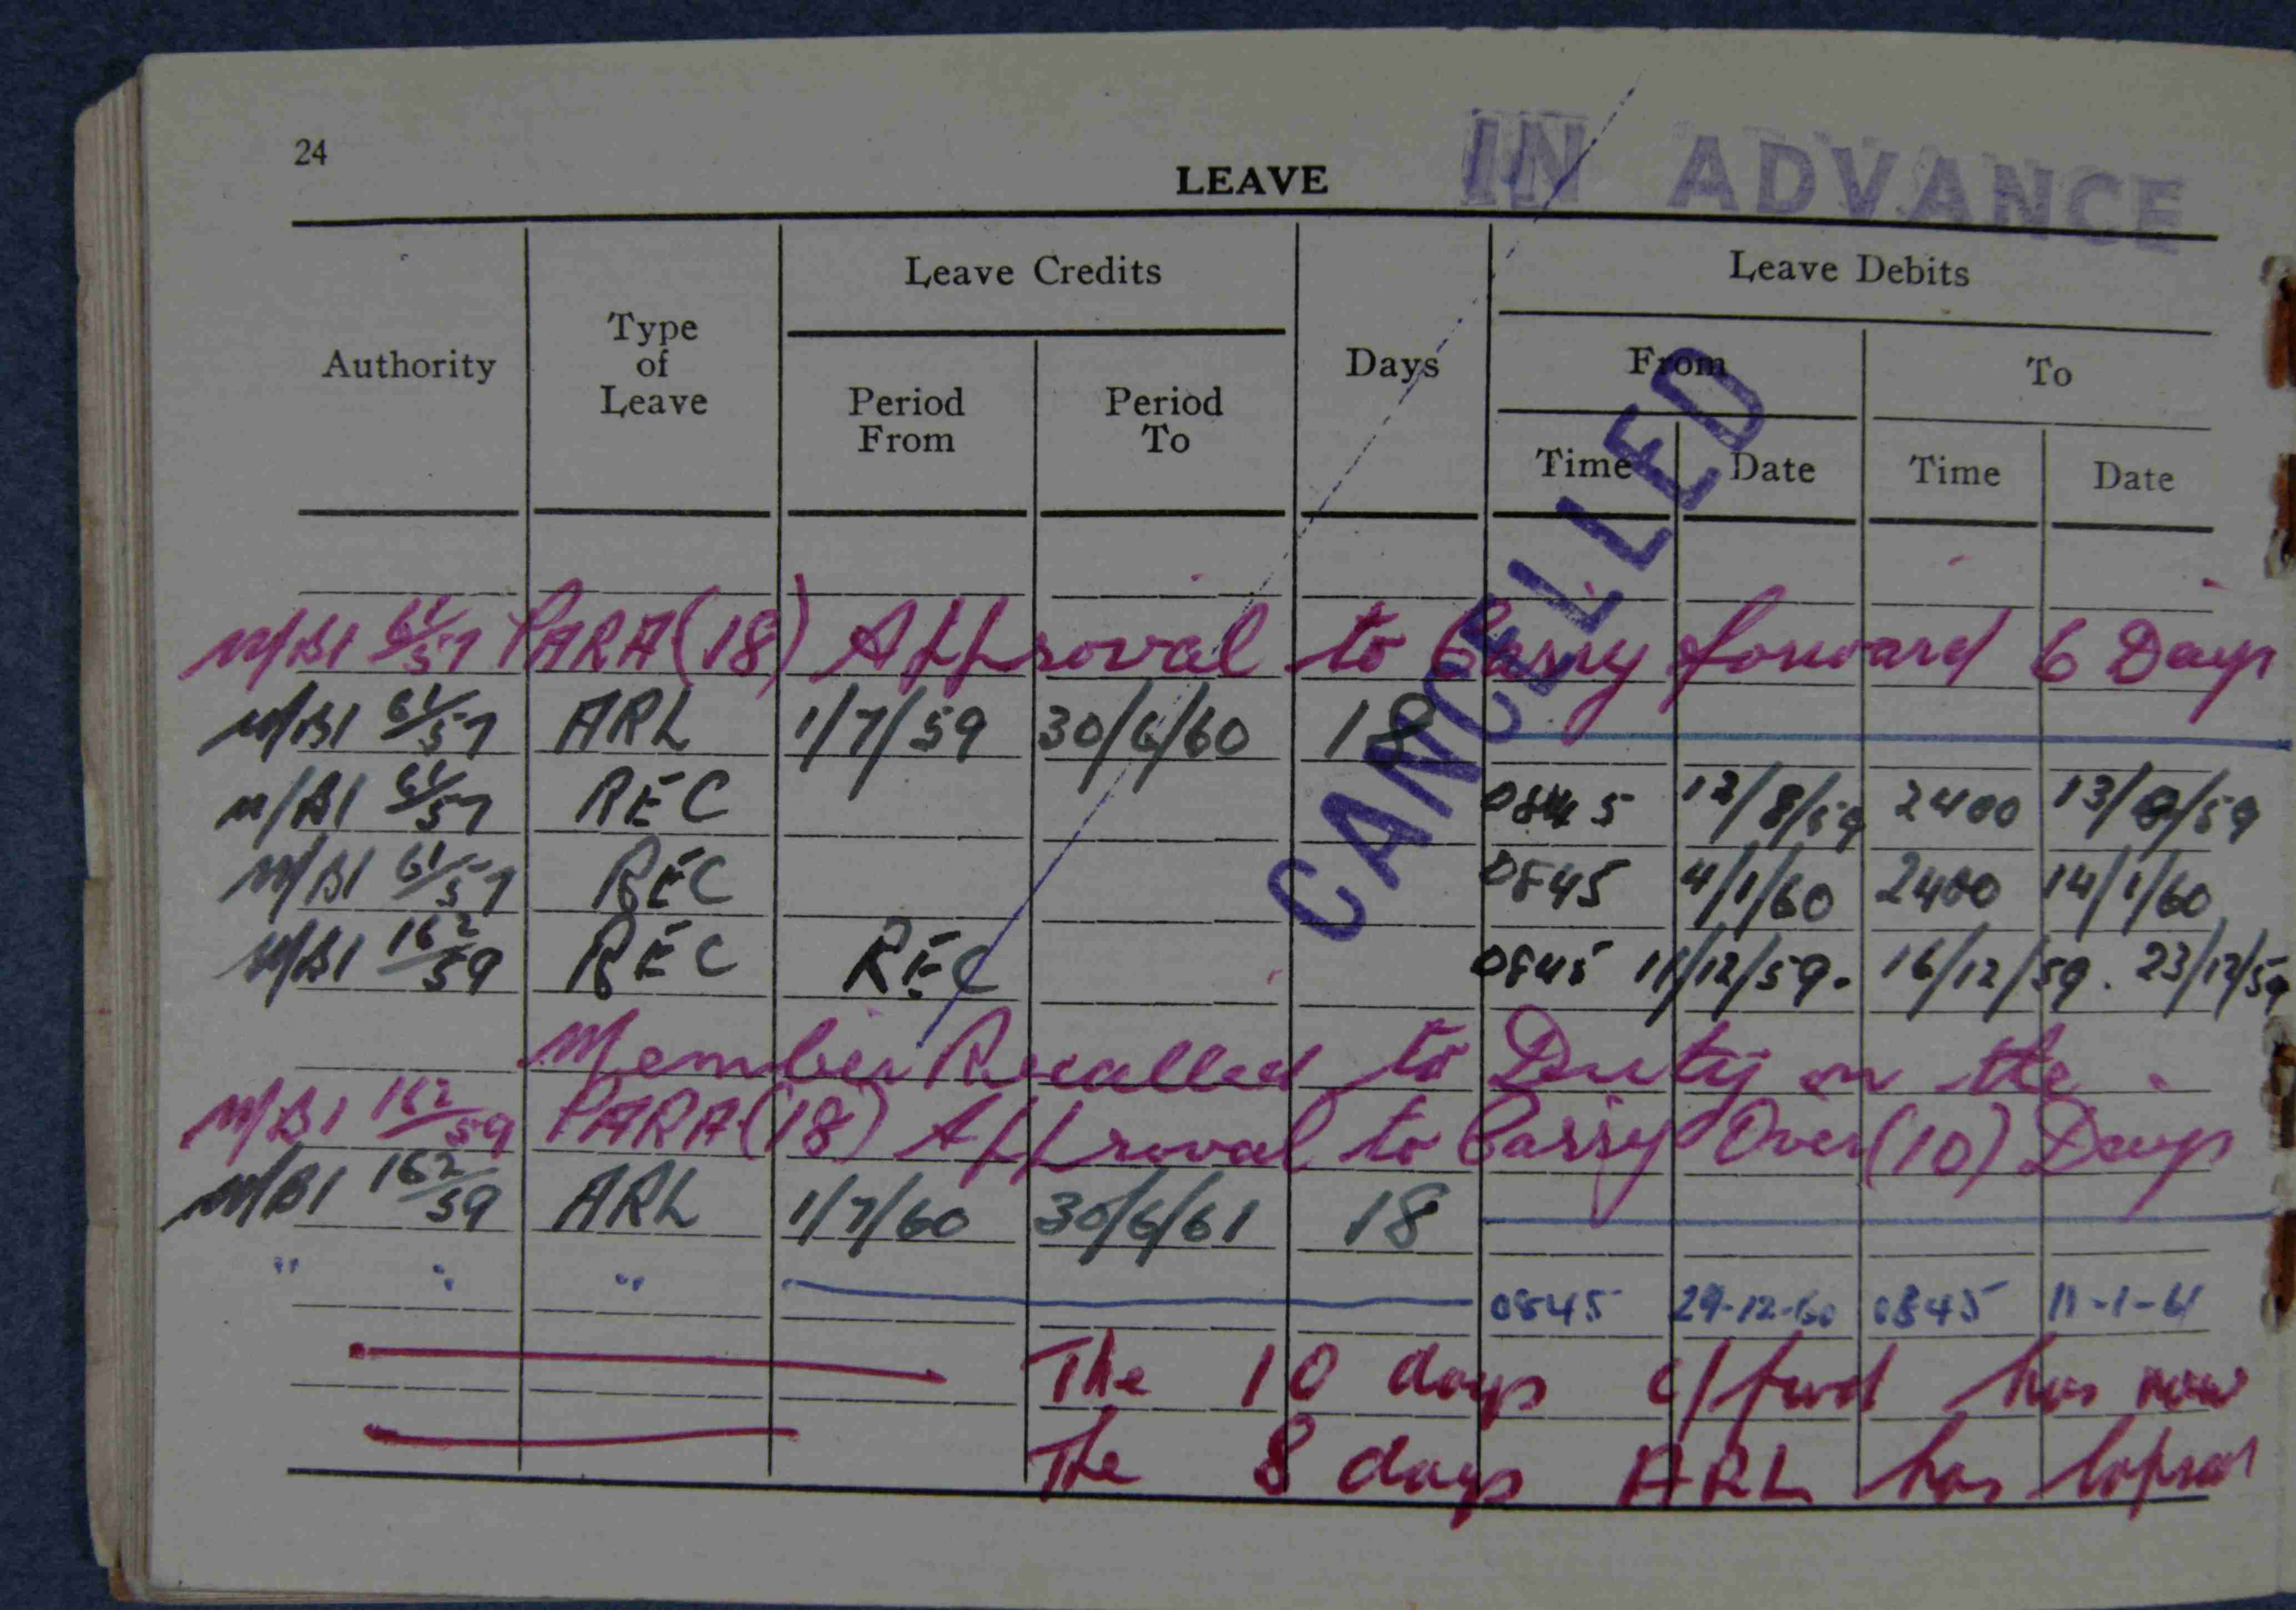 24
LEAVE
IN ADVANCE
Authority
Type of Leave
Leave Credits
Period From
Period To
Days
Leave Debits
From
To
Time
Date
Time
Date
CANCELLED
M/B1 61/57 PARA (18) Approval to Carry forward 6 Days
M/B1 61/57 ARL 1/7/59 30/6/60 18
M/B1 61/57 REC 0845 12/8/59 2400 13/8/59
M/B1 61/57 REC 0845 4/1/60 2400 14/1/60
M/B1 162/59 REC REC 0845 11/12/59. 16/12/59. 23/12/59
Member Recalled to Duty on the
M/B1 162/59 PARA (18) Approval to Carry Over (10) Days
M/B1 162/59 ARL 1/7/60 30/6/61 18
" " " 0845 29-12-60 0845 11-1-61
The 10 days c/fwd has now
The 8 days ARL has lapsed